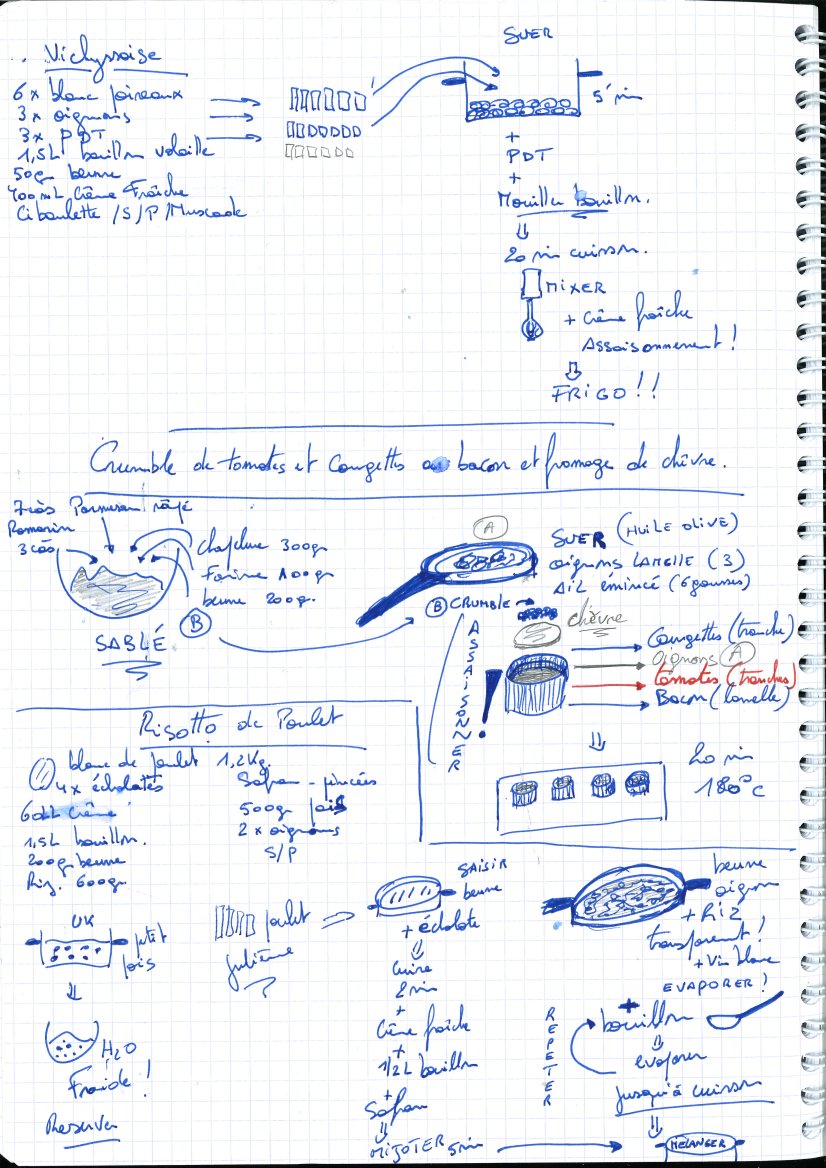 Vichyssoise
6 x blanc poireaux
3 x oignons
3 x PDT
1,5L bouillon volaille
50gr beurre
400mL Crème Fraîche
Ciboulette / S / P / Muscade
SUER
5' min
+
PDT
+
Mouiller bouillon.
20 min cuisson.
MIXER
+ Crème fraîche
Assaisonnement !
FRIGO !!
Crumble de tomates et Courgettes au bacon et fromage de chèvre.
7càs Parmesan râpé
Romarin
3 càs
chapelure 300gr
Farine 100gr
beurre 200gr.
B
SABLÉ
A
SUER (HUILE OLIVE)
oignons LAMELLE (3)
AIL émincé (6 gousses)
B CRUMBLE
chèvre
ASSAISONNER !
Courgettes (tranche)
Oignons A
tomates (tranches)
Bacon (lamelle)
20 min
180°C
Risotto de Poulet
blanc de poulet 1,2Kg.
4 x échalotes
6dL Crème
1,5L bouillon.
200gr beurre
Riz. 600gr
Safran - pincées
500gr pois
2 x oignons
S/P
petit
pois
H2O
Froide !
Reserver
poulet
Julienne
SAISIR
beurre
+ échalote
Cuire
2 min
+
Crème fraîche
+
1/2L bouillon
+
Safran
MIJOTER 5min
beurre
oignon
+ RIZ
transparent !
+ Vin blanc
EVAPORER !
REPETER
+
bouillon
evaporer
jusqu'à cuisson
MELANGER